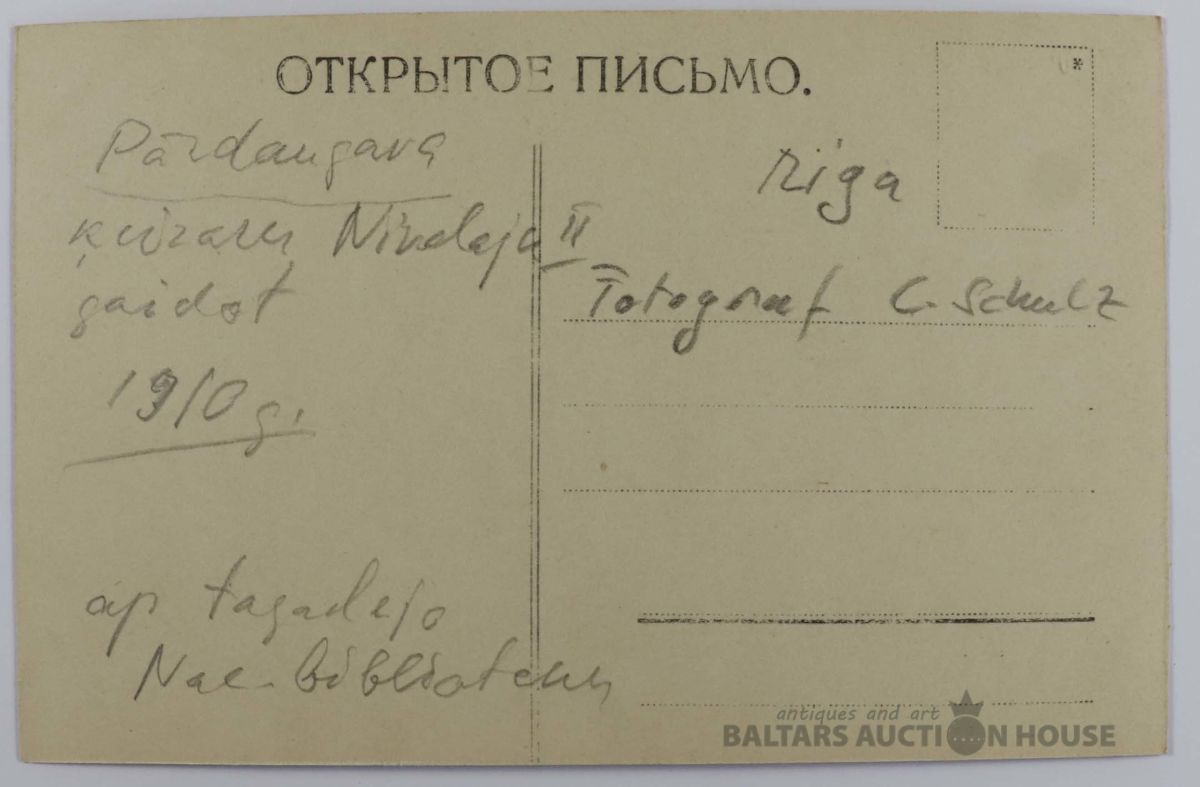 ОТКРЫТОЕ ПИСЬМО.
Pārdaugava
ķeizaru Nikolaju II
gaidot
1910 g.
ap tagadejo
Nac. biblioteku
Riga
Fotograf C. Schulz
antiques and art
BALTARS AUCTION HOUSE